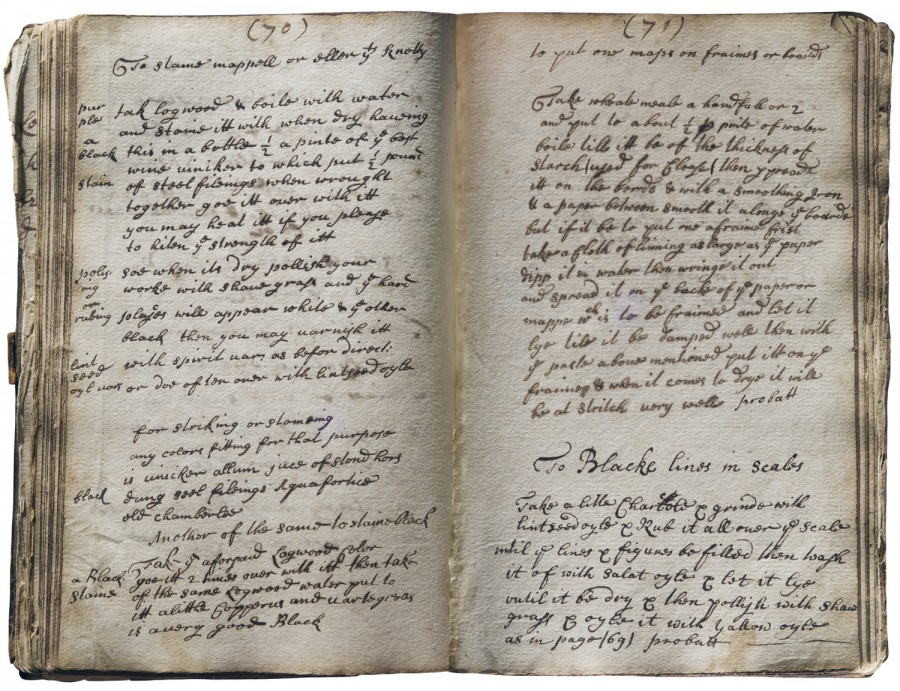 (70)
To staine mappell or ellen yt knotty
pur
ple
tak logwood & boile with water
and staine itt with when dry haueing
a
black
this in a bottle ½ a pinte of ye best
wine viniker to which put ½ pound
stain
of steel fileings when wrought
together goe itt over with itt
you may heat itt if you please
to hiten ye strength of itt
polis
ing
or
rubing
soe when its dry pollish your
worke with shaue grass and ye hard
plases will appear white & ye other
black then you may varnish itt
lint
seed
oyl vars
with spirit vars as befor direct:
or doe often over with lintseed oyle
for striking or staineing
any colors fitting for that purpose
is viniker allum juce of
black
dung steel fileings Aquafortice
old chamberlee
Another of the same to staine black
Take ye aforsaid Logwood Color
a Black
Staine
goe itt 2 times over with itt then take
of the same Logwood water put to
itt alittle Copperus and
is avery good Black
(71)
to put one maps on fraimes or boards
Take wheate meale a handfull or 2
and put to a bout ½ pinte of water
boile till it be of the thickness of
starch (used for Closse) then spread
itt on the bords & with a smoothing Iron
& a paper between smooth it alonge ye boards
but if it be to put one a fraime first
take a Cloth of linning as large as ye paper
dipp it in water then wringe it out
and spread it on ye backe of ye paper or
mappe wch is to be fraimed and let it
lye till it be damped well then with
ye paste aboue mentioned put itt on ye
fraimes & when it comes to drye it will
be at stritch very well probatt
To Blacke lines in scales
Take a litle Charcole & grinde with
lintseed oyle & Rub it all over ye scale
until ye lines & figures be filled then wash
it of with salat oyle & let it lye
vntil it be dry & then pollish with shaue
grass & oyle it with yallow oyle
as in page (69) probatt